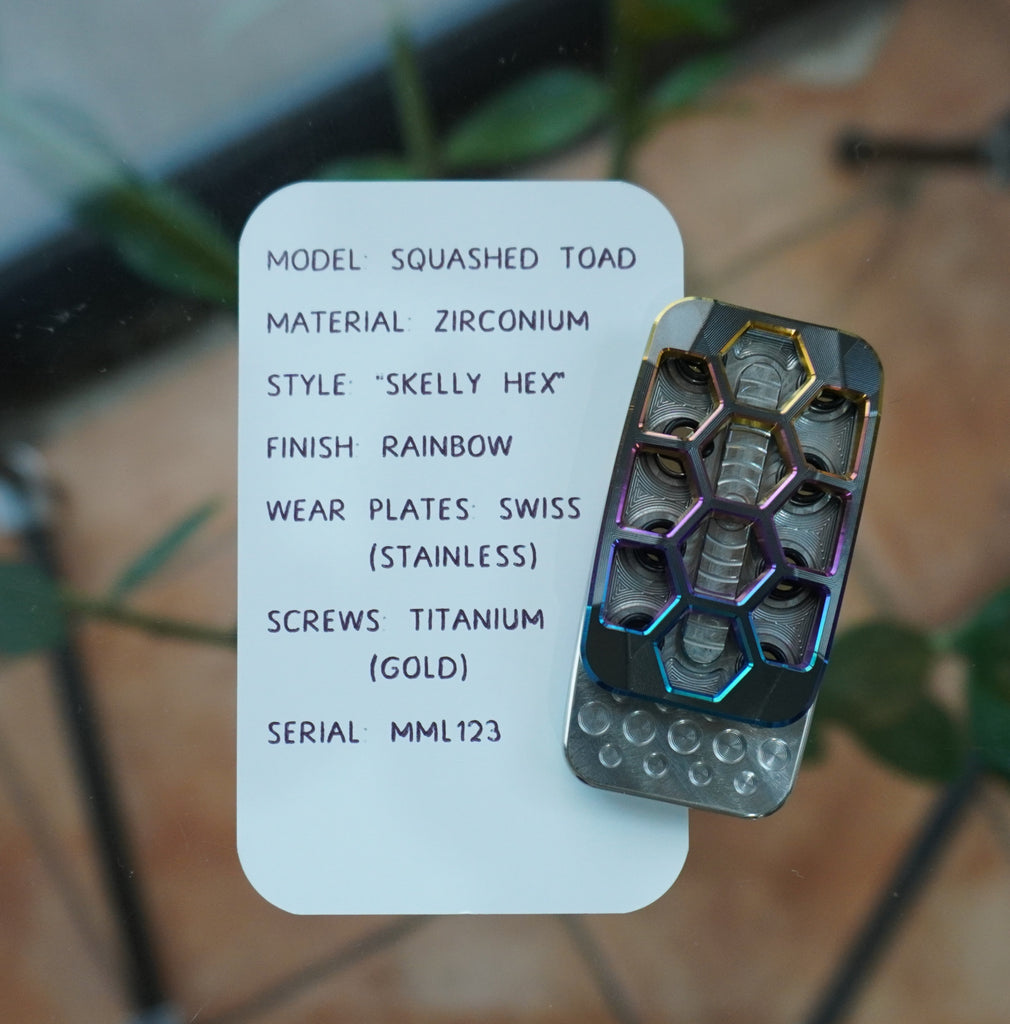 MODEL: SQUASHED TOAD
MATERIAL: ZIRCONIUM
STYLE: "SKELLY HEX"
FINISH: RAINBOW
WEAR PLATES: SWISS
(STAINLESS)
SCREWS: TITANIUM
(GOLD)
SERIAL: MML123